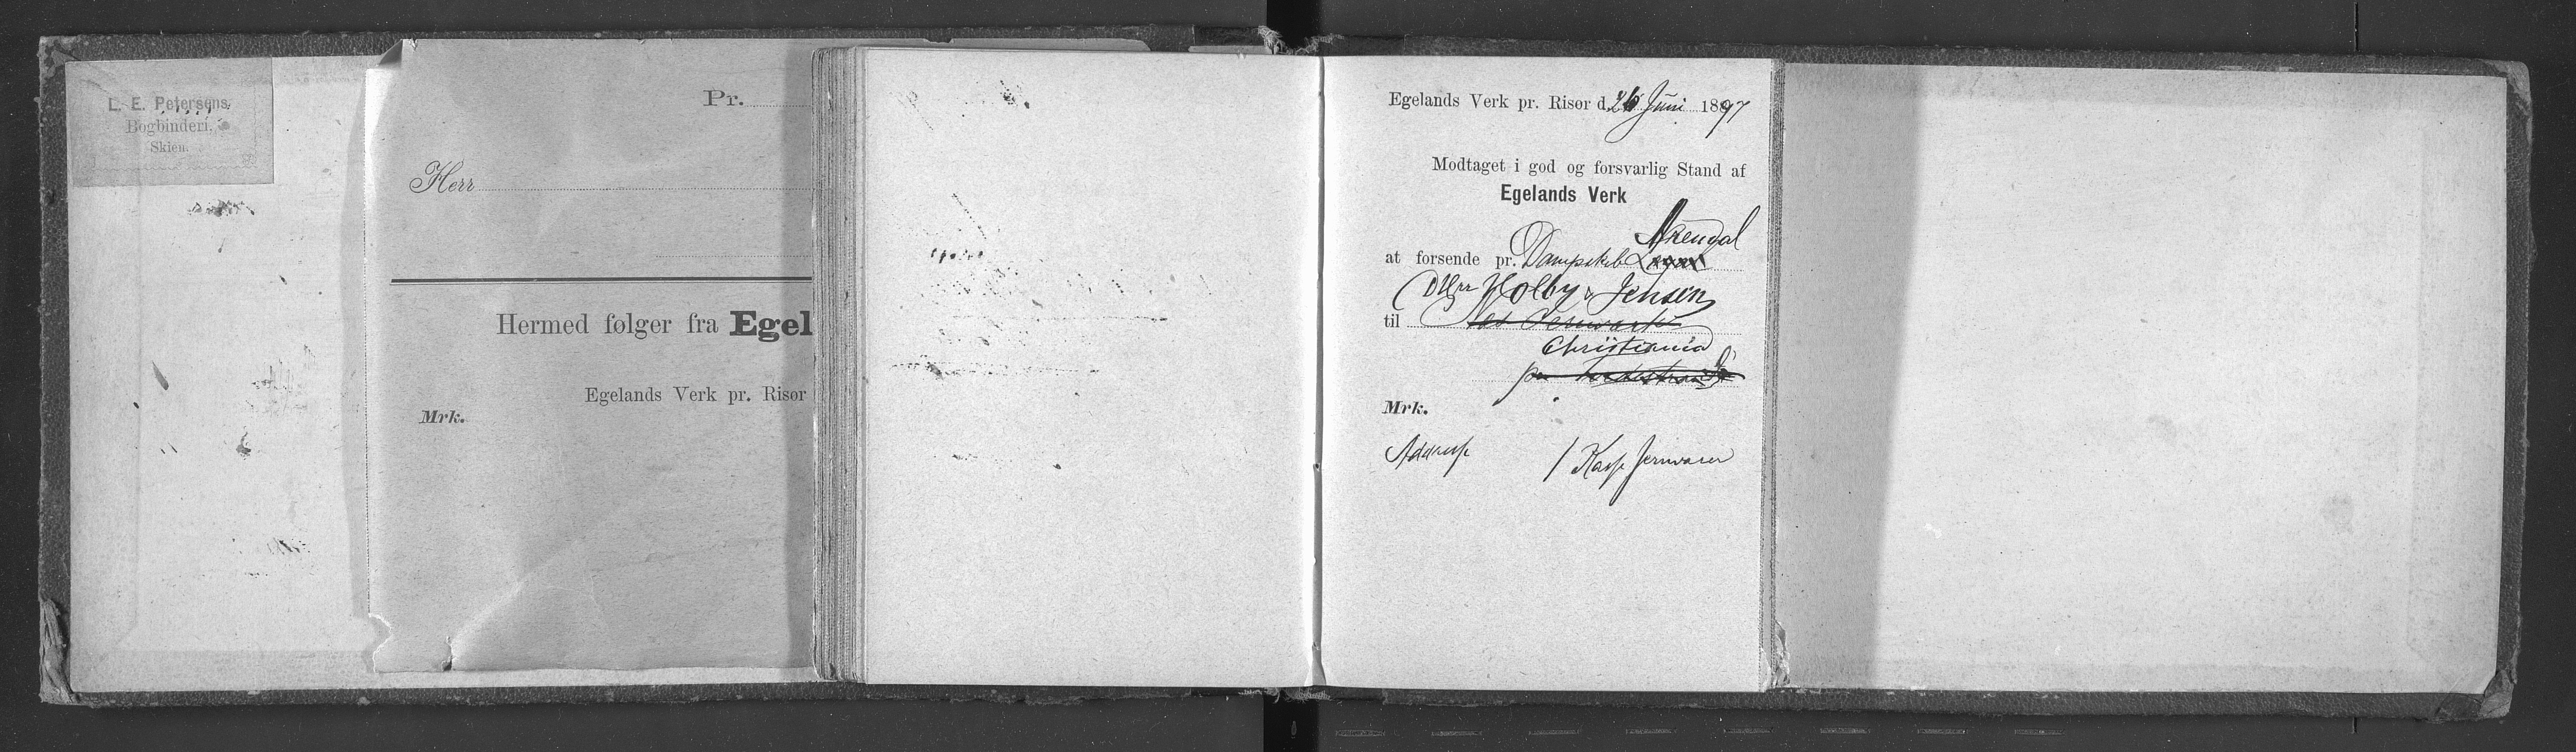 L. E. Petersens
Bogbinderi.
Skien.
Pr.
Herr
Hermed følger fra Egel
Egelands Verk pr. Risør
Mrk.
Egelands Verk pr. Risør d. 26 Juni 1897
Modtaget i god og forsvarlig Stand af
Egelands Verk
Arendal
at forsende pr. Dampskib
DHrr Holby & Jensen
til
Christiania
Mrk.
Adresse 1 Kasse Jernvarer